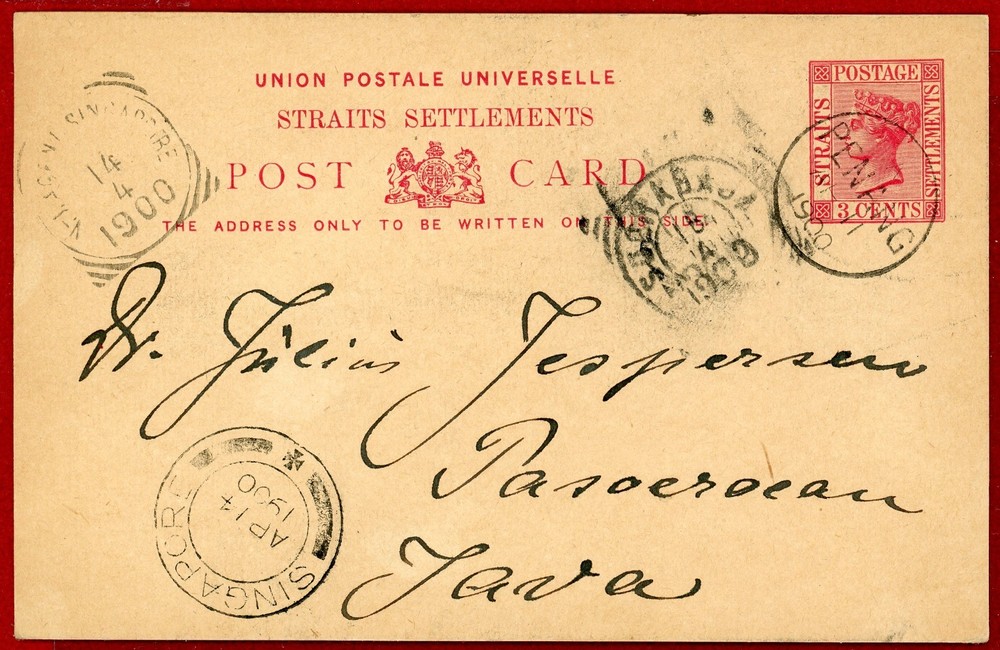 UNION POSTALE UNIVERSELLE
STRAITS SETTLEMENTS
POST CARD
THE ADDRESS ONLY TO BE WRITTEN ON THIS SIDE
POSTAGE
STRAITS
SETTLEMENTS
3 CENTS
PENANG
1900
N.I. AGENT SINGAPORE
14
4
1900
4
1900
Dr. Júlíus Jespersen
Pasoeroean
Java
SINGAPORE
AP 14
1900